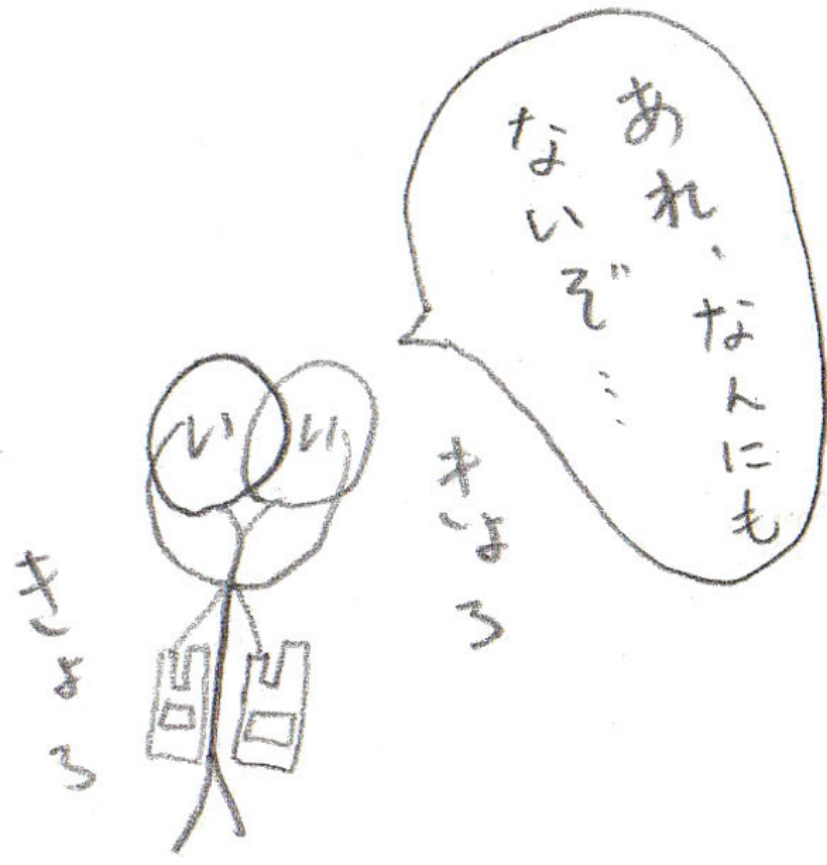 あれ、なんにも
ないぞ…
きょろ
きょろ